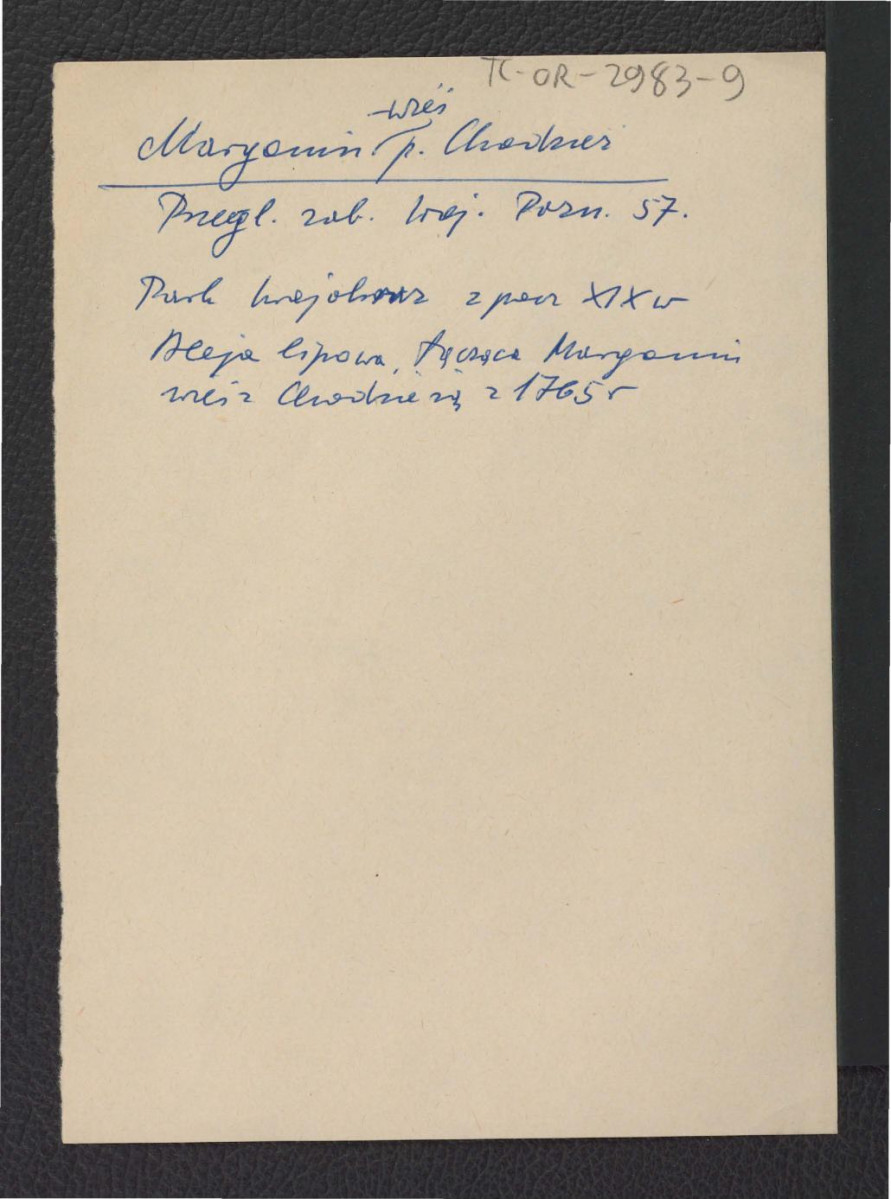 TC-OR-2983-9
-wieś
Margonin p. Chodzież
Przegl. zab. woj. Pozn. 57.
Park krajobraz z pocz XIX w
Aleja lipowa, łącząca Margonin
wieś z Chodzieżą z 1765 r